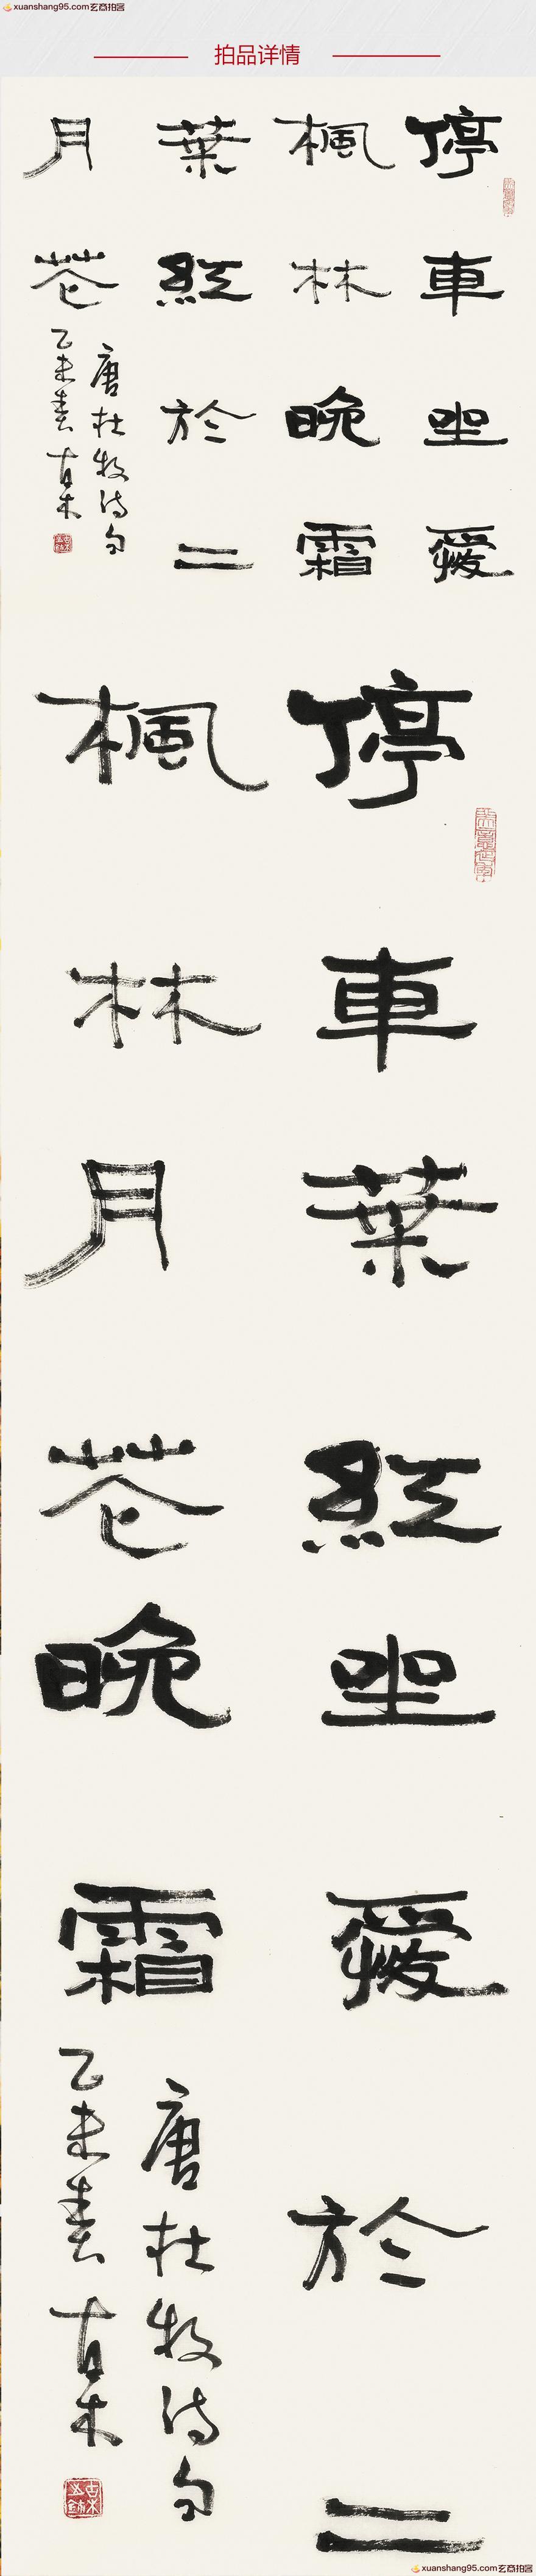 xuanshang95.com玄商拍客
拍品详情
停車坐愛
楓林晚霜
葉紅於二
月花
唐杜牧诗句
乙未春 古木
停車
楓林
葉紅
月花
坐愛
晚霜
於二
唐杜牧诗句
乙未春 古木
xuanshang95.com玄商拍客